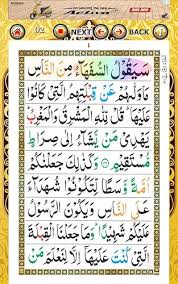 Activa
1/2
NEXT
BACK
سَيَقُوْلُ السُّفَهَآءُ مِنَ النَّاسِ
مَا وَلّٰىهُمْ عَنْ قِبْلَتِهِمُ الَّتِيْ كَانُوْا
عَلَيْهَا ؕ قُلْ لِّلّٰهِ الْمَشْرِقُ وَالْمَغْرِبُ
يَهْدِيْ مَنْ يَّشَآءُ اِلٰى صِرَاطٍ
مُّسْتَقِيْمٍ وَكَذٰلِكَ جَعَلْنٰكُمْ
اُمَّةً وَّسَطًا لِّتَكُوْنُوْا شُهَدَآءَ
عَلَى النَّاسِ وَيَكُوْنَ الرَّسُوْلُ
عَلَيْكُمْ شَهِيْدًا ؕ وَمَا جَعَلْنَا الْقِبْلَةَ
الَّتِيْ كُنْتَ عَلَيْهَاۤ اِلَّا لِنَعْلَمَ مَنْ